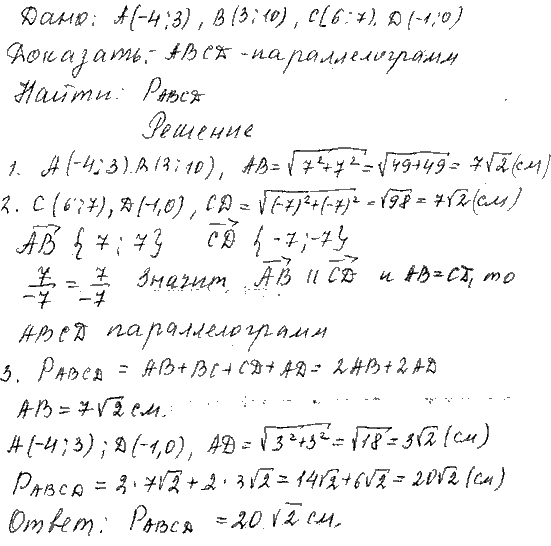 Дано: A(-4;3), B(3;10), C(6;7), D(-1;0)
Доказать: ABCD - параллелограмм
Найти: P_ABCD
Решение
1. A(-4;3), B(3;10), AB=√(7²+7²)=√(49+49)=7√2(см)
2. C(6;7), D(-1,0), CD=√((-7)²+(-7)²)=√98=7√2(см)
AB {7;7} CD {-7;-7}
7/-7 = 7/-7 Значит AB || CD и AB=CD, то
ABCD параллелограмм
3. P_ABCD = AB+BC+CD+AD=2AB+2AD
AB=7√2 см.
A(-4;3); D(-1,0), AD=√(3²+3²)=√18=3√2(см)
P_ABCD=2·7√2+2·3√2=14√2+6√2=20√2(см)
Ответ: P_ABCD =20√2 см.